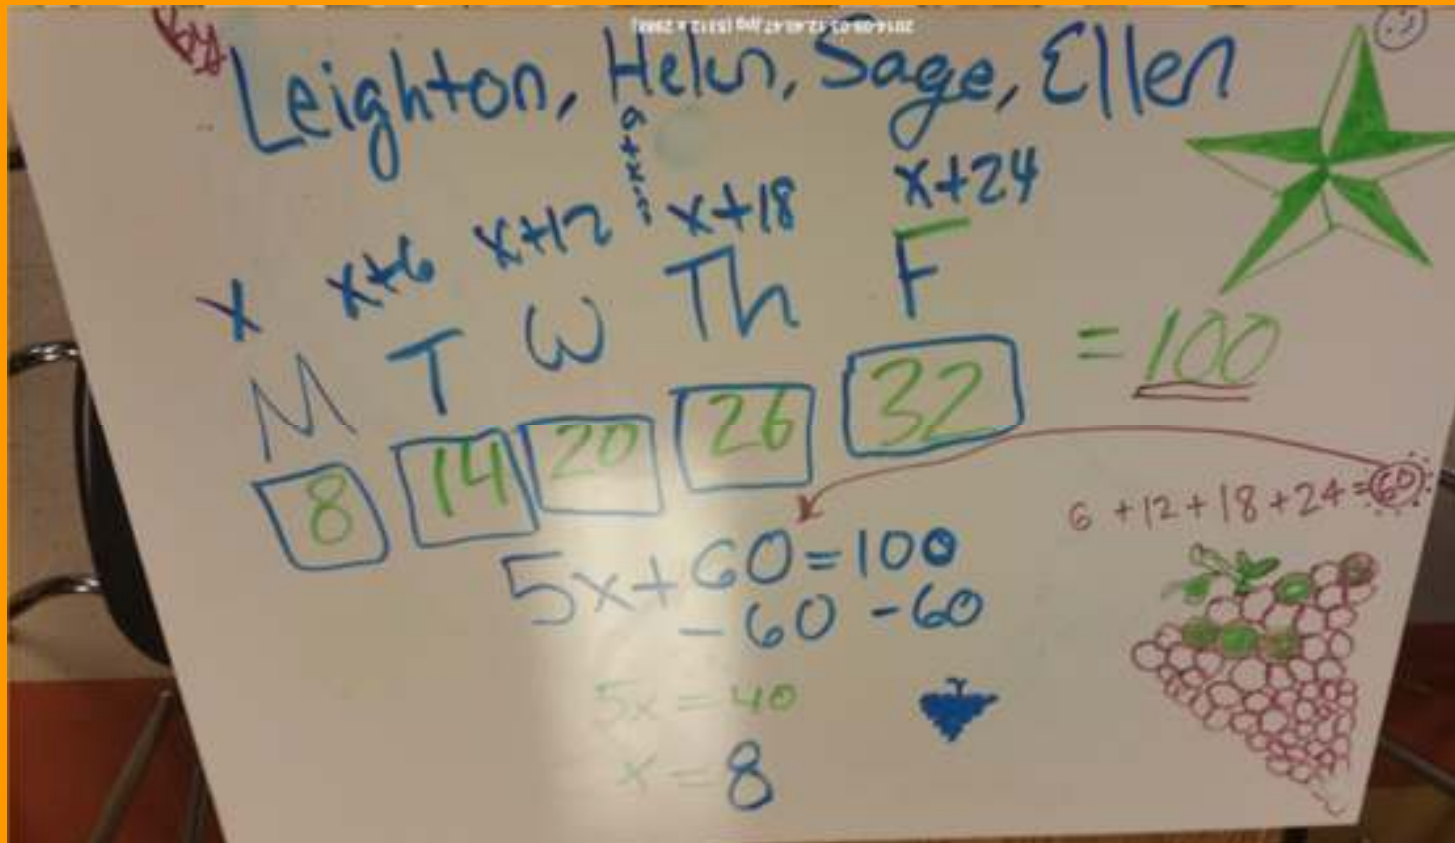 Leighton, Helen, Sage, Ellen
x x+6 x+12 x+18 x+24
M T W Th F
8 14 20 26 32 = 100
6 +12+18+24=60
5x+60=100
-60 -60
5x = 40
x = 8